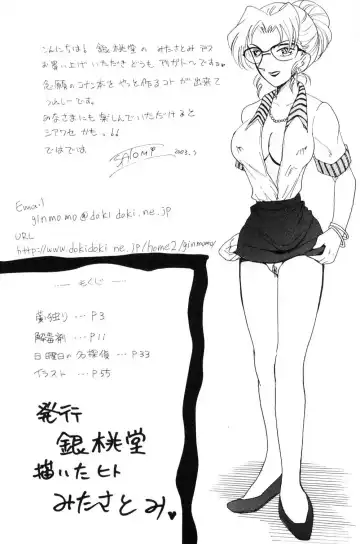 こんにちは。銀桃堂のみたさとみです
お買い上げいただきどうもアリガトーです。
念願のコナン本をやっと作るコトが出来て
うれしーです。
みなさまにも楽しんでいただけると
シアワセかも。
ではでは
SATOMI 2003.
Email
ginmomo@dokidoki.ne.jp
URL
http://www.dokidoki.ne.jp/home2/ginmomo/
もくじ
独り … P3
解毒剤 … P11
日曜日の名探偵 … P33
イラスト … P55
発行
銀桃堂
描いたヒト
みたさとみ